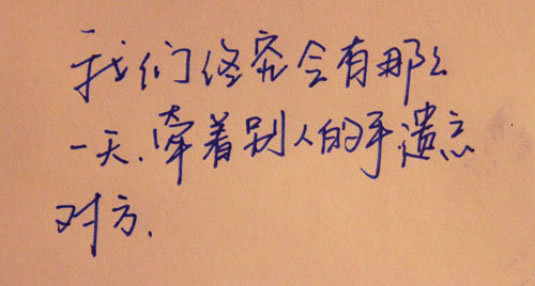 我们终究会有那么
一天.牵着别人的手.遗忘
对方.